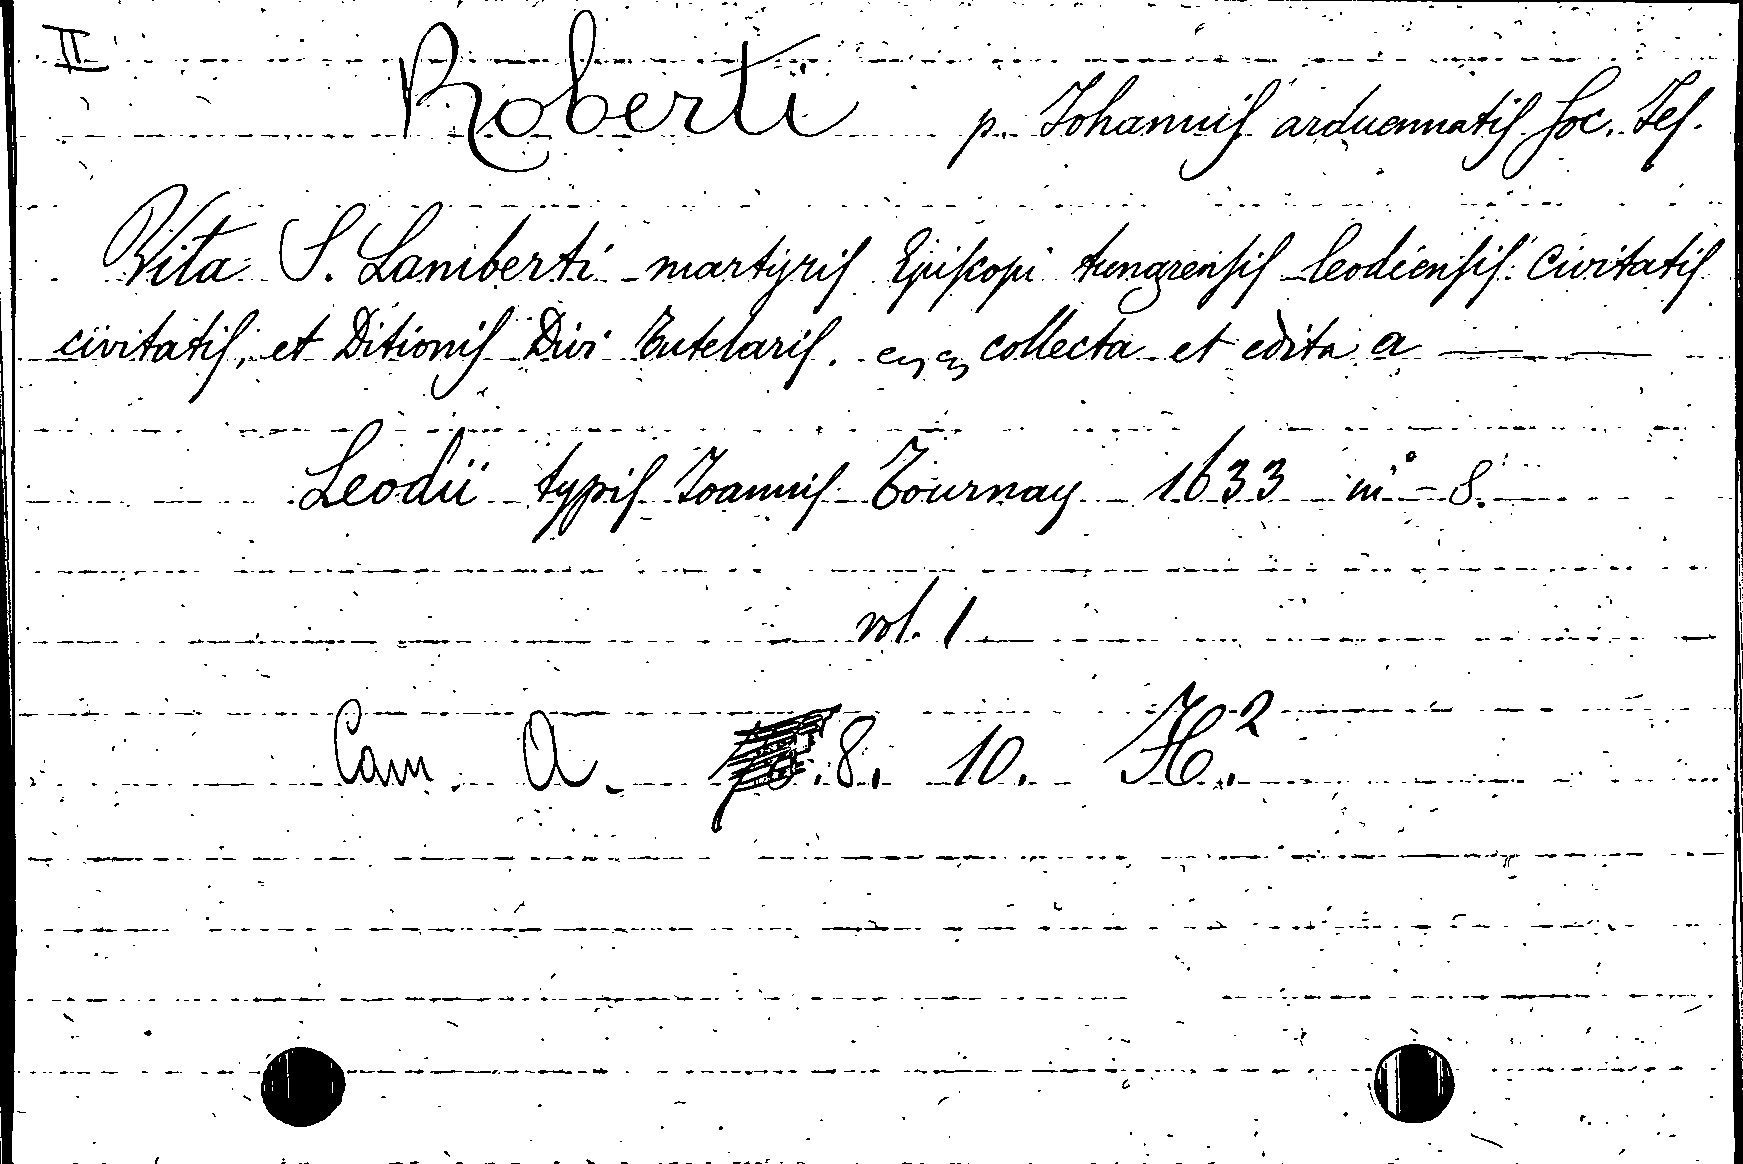 II
Roberti p. Johannis arduennatis Soc. Jes.
Vita S. Lamberti martyris Episkopi tungrensis leodiensis civitatis
civitatis, et Ditionis Divi Tutelaris. collecta et edita a — —
Leodii typis Joannis Tournay 1633 in° - 8.
vol. 1
Cam. A. 8. 10. H.²